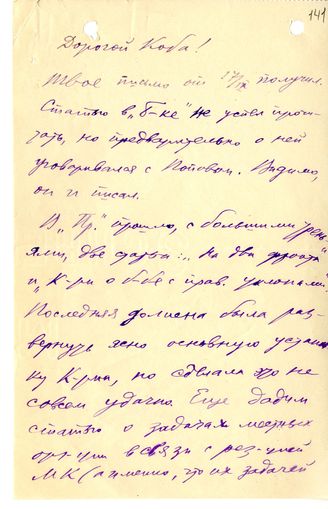 141
Дорогой Коба!
Твое письмо от получил.
Статью в „Б-ке" не успел прочи-
тать, но предварительно о ней
уговаривался с Поповым. Видимо,
он и писал.
В „Пр." прошло, с большими трени-
ями, две статьи: „На два фронта"
и „К-рн о б-бе с прав. уклонами".
Последняя должна была раз-
вернуть ясно основную установ-
ку К-рна, но сделала это не
совсем удачно. Еще дадим
статью о задачах местных
орг-ций в связи с рез-цией
МК (а именно, что их задачей